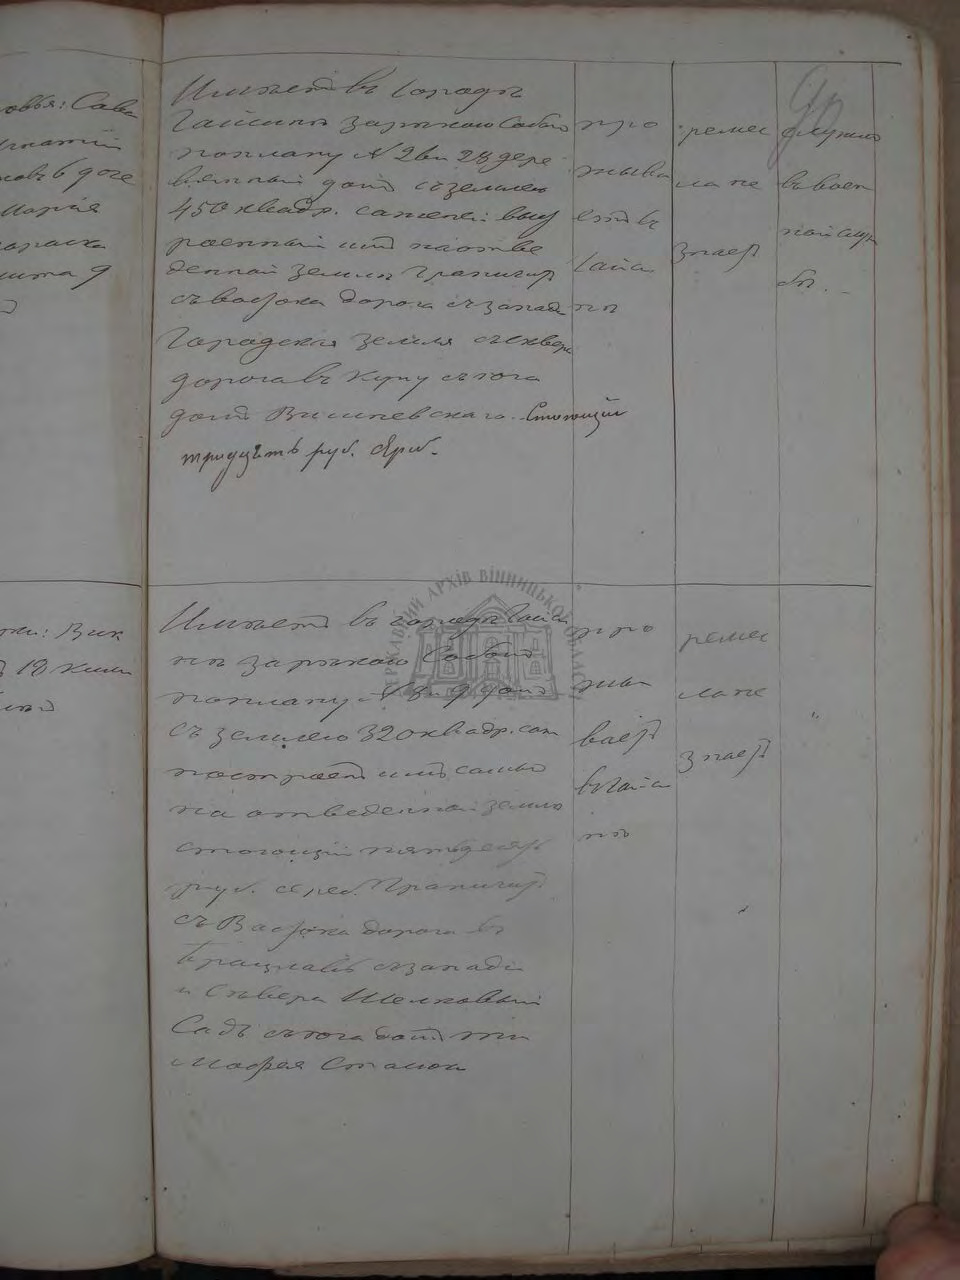 90
овья: Сава
6 доче
Мария
Имеетъ въ городѣ
Гайсинѣ за рѣкою Собою
по плану N 2 ви 28 дере
вянный домъ съ землею
450 квадр. сажений выс
роенный имъ на отве
денной землѣ Граничитъ
съ востока дорога съ запада
Городская земля съ сѣвера
дорога въ Куну съ юга
домъ Вишневскаго. Стоющій
тридцать руб. сереб.
про
жыва
етъ въ
Гайси
нѣ
ремес
ла не
знаетъ
служил
въ воен
ной служ
бѣ.
18
Имѣетъ въ городѣ Гайси
нѣ за рѣкою Собою
по плану N домъ
съ землею 320 квадр. саж
построенъ имъ самымъ
на отведенной землѣ
стоющій пятьдесятъ
руб. сереб. Граничитъ
съ Востока дорога въ
Брацлавъ съ запада
и Сѣвера Шелковый
Садъ съ юга домъ
Мафея
про
жы
ваетъ
въ Гайси
нѣ
ремес
ла не
знаетъ
"
ДЕРЖАВНИЙ АРХІВ ВІННИЦЬКОЇ ОБЛАСТІ